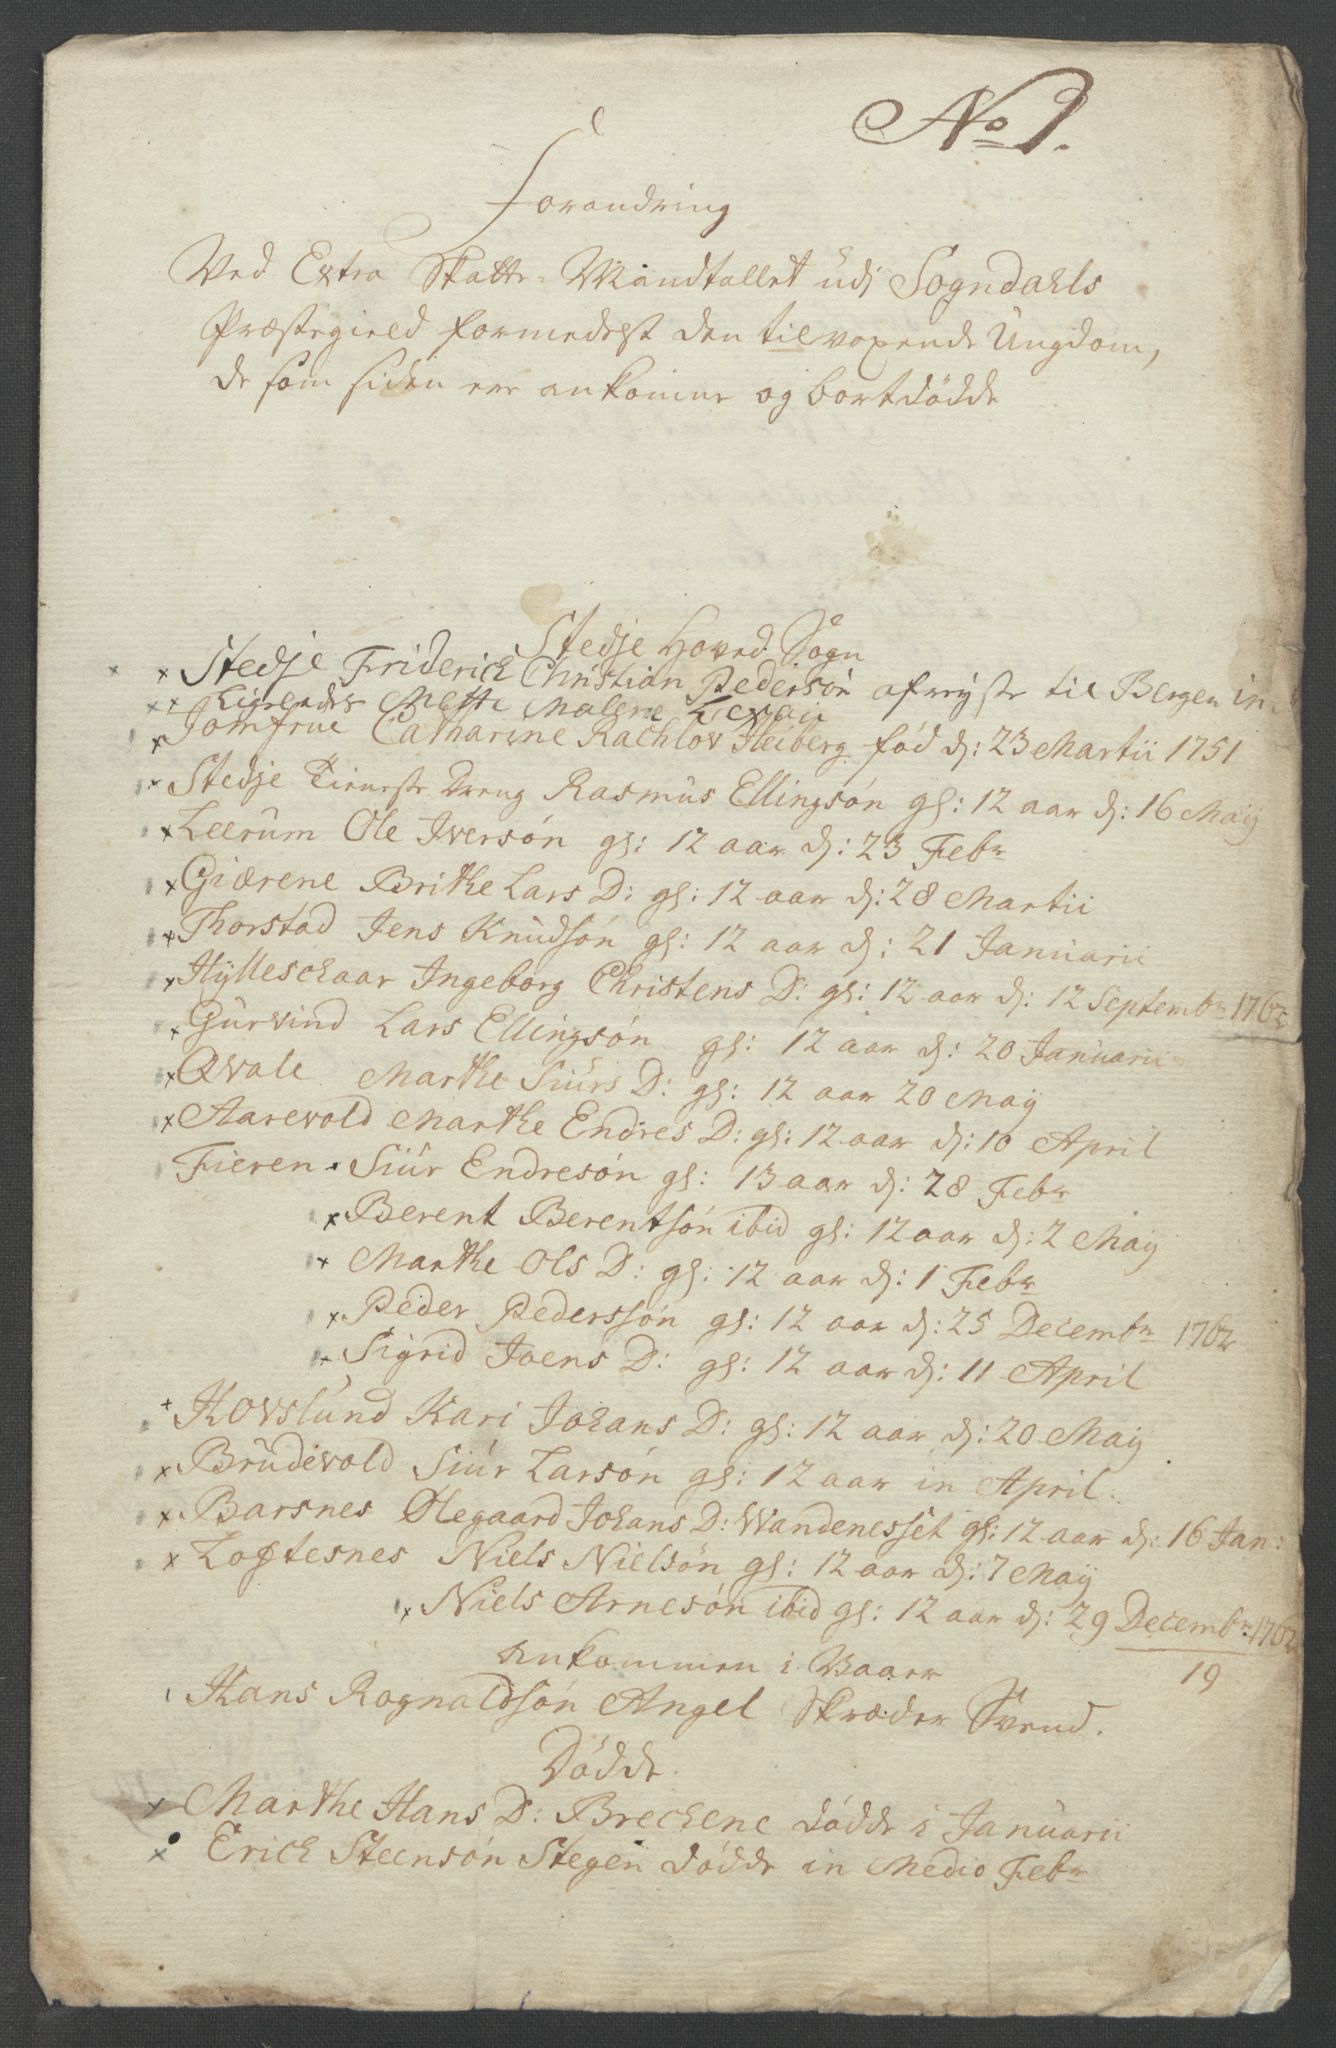 No 1.
Forandring
Ved Extra Skatte-Mandtallet udj Sogndahls
Præstegield formedelst den tilvoxende Ungdom,
de som siden ere ankomne og bortdödde
Stedje Hoved Sogn
Stedje Friderich Christian Pedersön afreyste til Bergen in
Ligeledes Mette Malene
Jomfrue Catharine Rachlov Heiberg fód d: 23 Martii 1751
Stedje Tieneste Dreng Rasmus Ellingsón gl: 12 aar d: 16 Maij
Leerum Ole Iversón gl: 12 aar d: 23 Febr
Giærene Brithe Lars D: gl: 12 aar d: 28 Martii
Thorstad Jens Knudsón gl: 12 aar d: 21 Januarii
Hylleschaar Ingeborg Christens D: gl: 12 aar d: 12 Septembr 1762
Gurvind Lars Ellingsón gl: 12 aar d: 20 Januarii
Qvale Marthe Siurs D: gl: 12 aar 20 Maij
Aarevold Marthe Endres D: gl: 12 aar d: 10 April
Fieren Siur Endresón gl: 13 aar d: 28 Febr
Berent Berentsón ibid gl: 12 aar d: 2 Maij
Marthe Ols D: gl: 12 aar d: 1 Febr
Peder Pederssón gl: 12 aar d: 25 Decembr 1762
Sigrid Joens D: gl: 12 aar d: 11 April
Kovslund Kari Johans D: gl: 12 aar d: 20 Maij
Brudevold Siur Larsón gl: 12 aar in April.
Barsnes Olegaard Johans D: Wandenesset gl: 12 aar d: 16 Jan:
Loftesnes Niels Nielsón gl: 12 aar d: 7 Maij
Niels Arnesón ibid gl: 12 aar d: 29 Decembr 1762
Ankommen i Vaaer
19
Hans Rognaldsón Angel Skræder Svend.
Dödde.
Marthe Hans D: Brechene dödde i Januarii
Erich Steensón Stegen dödde in Medio Febr